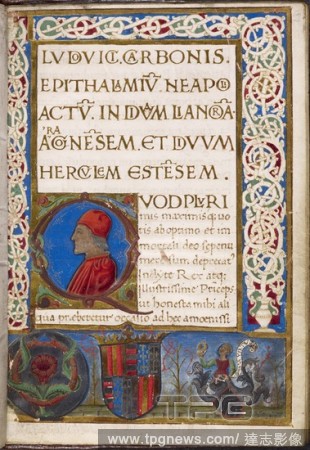 LVDOVIC. CARBONIS.
EPITHALAMIV̄. NEAPO
ACTV̄. IN DIVAM LIANORĀ.
RA
AGŌNĒSEM. ET DIVVM
HERCVLEM ESTĒSEM.
QVOD PLVRI
mis maximisq; uo
tis ab optimo et im
mortali deo sepenu
mero
Inclyte Rex atq;
illustrissime Princeps
ut honesta mihi ali
qua præberetur occasio ad hec amoenissi
TPG
www.tpgnews.com/達志影像